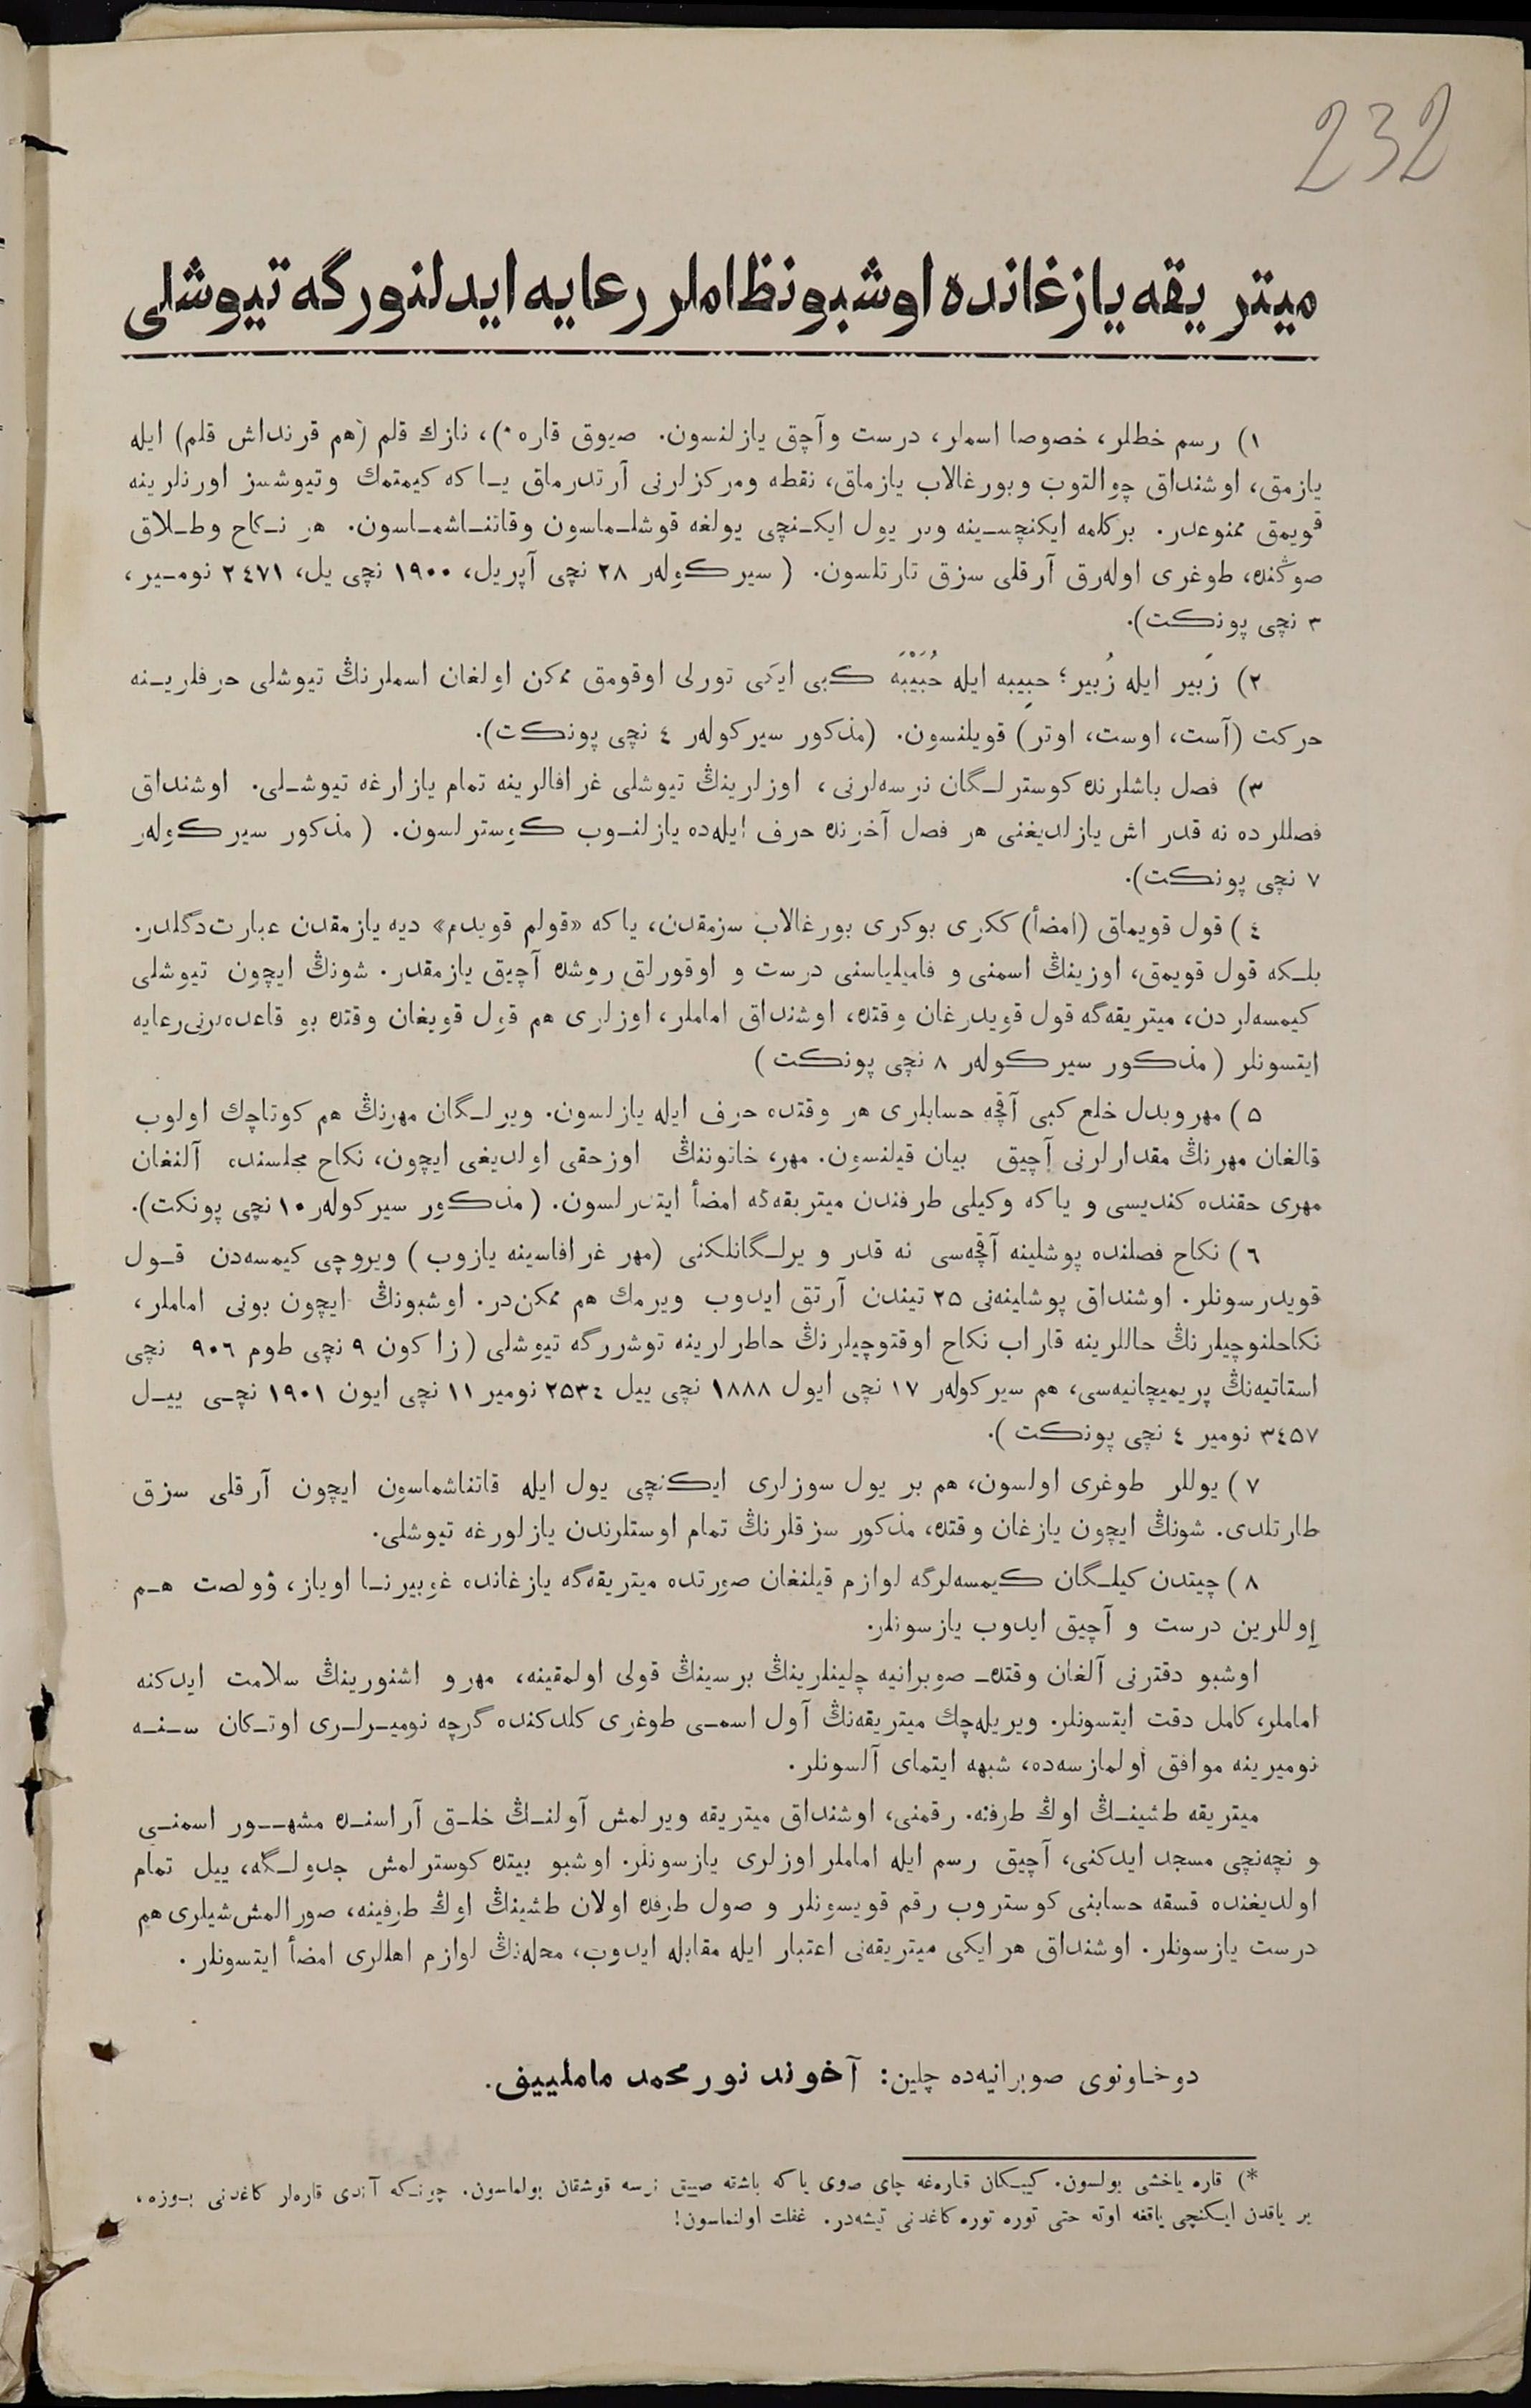 232
ميتريقه يازغانده اوشبو نظاملر رعايه ايدلنورگه تيوشلى
١) رسم خطلر، خصوصا اسملر، درست وآچق يازلنسون. صيوق قاره*)، نازك قلم (هم قرنداش قلم) ايله
يازمق، اوشنداق چوالتوب وبورغالاب يازماق، نقطه ومركزلرنى آرتدرماق يـا كه كيمتمك وتيوشسز اورنلرينه
قويمق ممنوعدر. بركلمه ايكنچسـينه وبر يول ايكـنچى يولغه قوشلـماسون وقاتنـاشمـاسون. هر نـكاح وطـلاق
صوڭنده، طوغرى اولەرق آرقلى سزق تارتلسون. (سيركولەر ٢٨ نچى آپريل، ١٩٠٠ نچى يل، ٢٤٧١ نومـير،
٣ نچى پونكت).
٢) زَبير ايله زُبير؛ حبِيبه ايله حُبَيْبَه كبى ايكى تورلى اوقومق ممكن اولغان اسملرنڭ تيوشلى حرفلريـنه
حركت (آست، اوست، اوتر) قويلنسون. (مذكور سيركولەر ٤ نچى پونكت).
٣) فصل باشلرنده كوسترلـگان نرسەلرنى، اوزلرينڭ تيوشلى غرافالرينه تمام يازارغه تيوشـلى. اوشنداق
فصللرده نه قدر اش يازلديغنى هر فصل آخرنده حرف ايلەده يازلنـوب كوسترلسون. (مذكور سيركولەر
٧ نچى پونكت).
٤) قول قويماق (امضأ) ككرى بوكرى بورغالاب سزمقدن، ياكه «قولم قويدم» ديه يازمقدن عبارت دگلدر.
بلـكه قول قويمق، اوزينڭ اسمنى و فاميلياسنى درست و اوقورلق روشده آچيق يازمقدر. شونڭ ايچون تيوشلى
كيمسەلردن، ميتريقەگه قول قويدرغان وقتده، اوشنداق اماملر، اوزلرى هم قول قويغان وقتده بو قاعدەلرنى رعايه
ايتسونلر (مذكور سيركولەر ٨ نچى پونكت)
٥) مهروبدل خلع كبى آقچه حسابلرى هر وقتده حرف ايله يازلسون. ويرلـگان مهرنڭ هم كوتاچك اولوب
قالغان مهرنڭ مقدارلرنى آچيق بيان قيلنسون. مهر، خاتوننڭ اوزحقى اولديغى ايچون، نكاح مجلسنده آلنغان
مهرى حقنده كنديسى و ياكه وكيلى طرفندن ميتريقەگه امضأ ايتدرلسون. (مذكور سيركولەر ١٠ نچى پونكت).
٦) نكاح فصلنده پوشلينه آقچەسى نه قدر ويرلـگانلكنى (مهر غرافاسينه يازوب) ويروچى كيمسەدن قـول
قويدرسونلر. اوشنداق پوشلينەنى ٢٥ تيندن آرتق ايدوب ويرمك هم ممكن در. اوشبونڭ ايچون بونى اماملر،
نكاحلنوچيلرنڭ حاللرينه قاراب نكاح اوقتوچيلرنڭ خاطرلرينه توشررگه تيوشلى (زاكون ٩ نچى طوم ٩٠٦ نچى
استاتيەنڭ پريميچانيەسى، هم سيركولەر ١٧ نچى ايول ١٨٨٨ نچى ييل ٢٥٣٤ نومير ١١ نچى ايون ١٩٠١ نچـى ييـل
٣٤٥٧ نومير ٤ نچى پونكت).
٧) يوللر طوغرى اولسون، هم بر يول سوزلرى ايكنچى يول ايله قاتناشماسون ايچون آرقلى سزق
طارتلدى. شونڭ ايچون يازغان وقتده، مذكور سزقلرنڭ تمام اوستلرندن يازلورغه تيوشلى.
٨) چيتدن كيلـگان كيمسەلرگه لوازم قيلنغان صورتده ميتريقەگه يازغانده غوبيرنـا اوياز، ۋولصت هـم
اٍوللرين درست و آچيق ايدوب يازسونلر.
اوشبو دفترنى آلغان وقتدە‌ـ صوبرانيه چلينلرينڭ برسينڭ قولى اولمقينه، مهر و اشنورينڭ سلامت ايدكنه
اماملر، كامل دقت ايتسونلر. ويريلەچك ميتريقەنڭ آول اسمـى طوغرى كلدكنده گرچه نوميـرلـرى اوتـكان سـنـه
نوميرينه موافق اولمازسەده، شبهه ايتماى آلسونلر.
ميتريقه طشينـڭ اوڭ طرفنه. رقمنى، اوشنداق ميتريقه ويرلمش آولنـڭ خلـق آراسنـده مشهـور اسمنـى
و نچەنچى مسجد ايدكنى، آچيق رسم ايله اماملر اوزلرى يازسونلر. اوشبو بيتده كوسترلمش جدولـگه، ييل تمام
اولديغنده قسقه حسابنى كوستروب رقم قويسونلر و صول طرفده اولان طشينڭ اوڭ طرفينه، صورالمش شيلرى هم
درست يازسونلر. اوشنداق هر ايكى ميتريقەنى اعتبار ايله مقابله ايدوب، محلەنڭ لوازم اهللرى امضأ ايتسونلر.
دوخاونوى صوبرانيەده چلين: آخوند نور محمد ماملييف.
*) قاره ياخشى بولسون. كيبـكان قارەغه چاى صوى ياكه باشته صييق نرسه قوشقان بولماسون. چونـكه آندى قارەلر كاغدنى بـوزه،
بر ياقدن ايـكنچى ياقغه اوته حتى توره توره كاغدنى تيشەدر. غفلت اولنماسون!